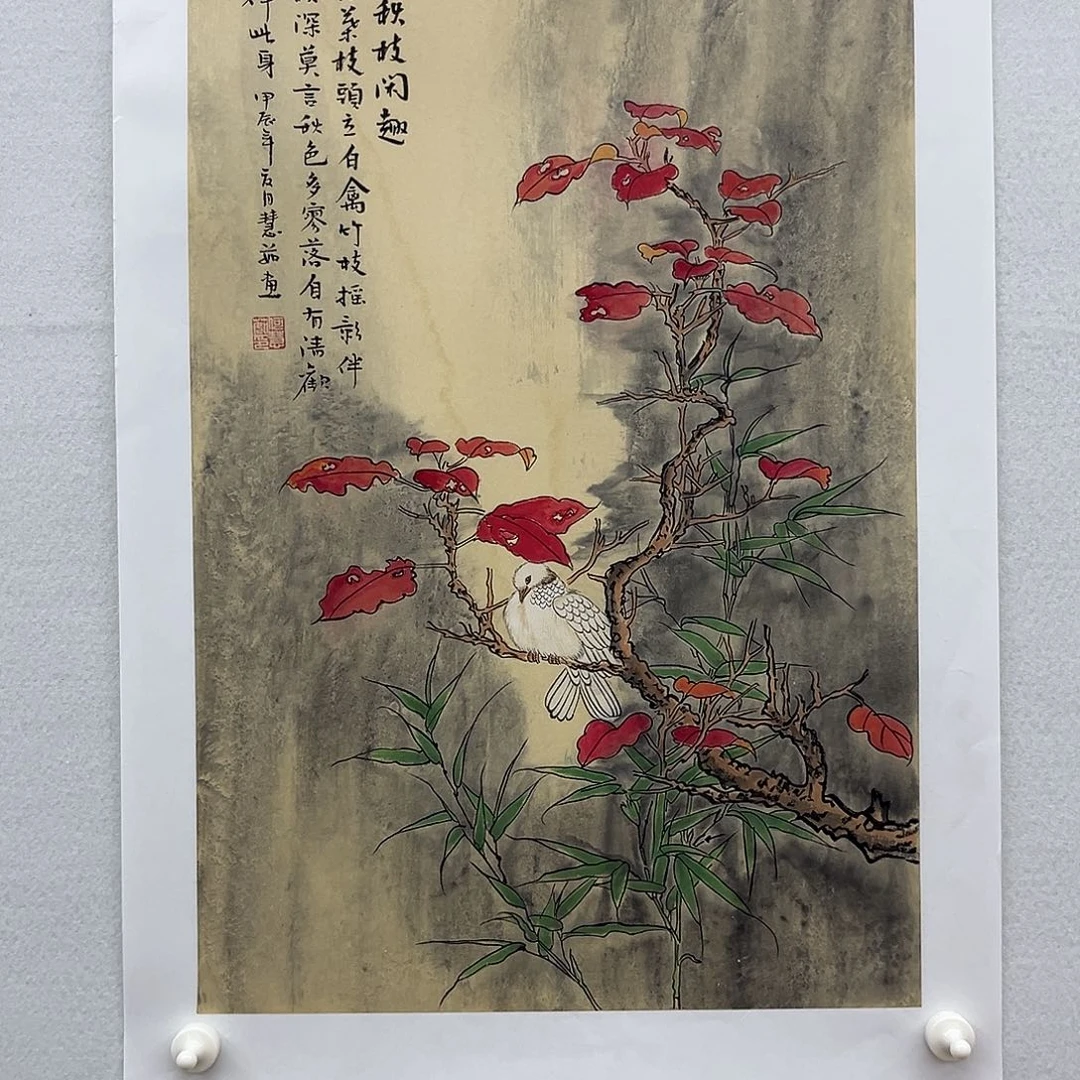 秋枝闲趣
葉枝頭立白禽竹枝摇影伴
深莫言秋色多寥落自有清歡
此身 甲辰年夏月慧茹画